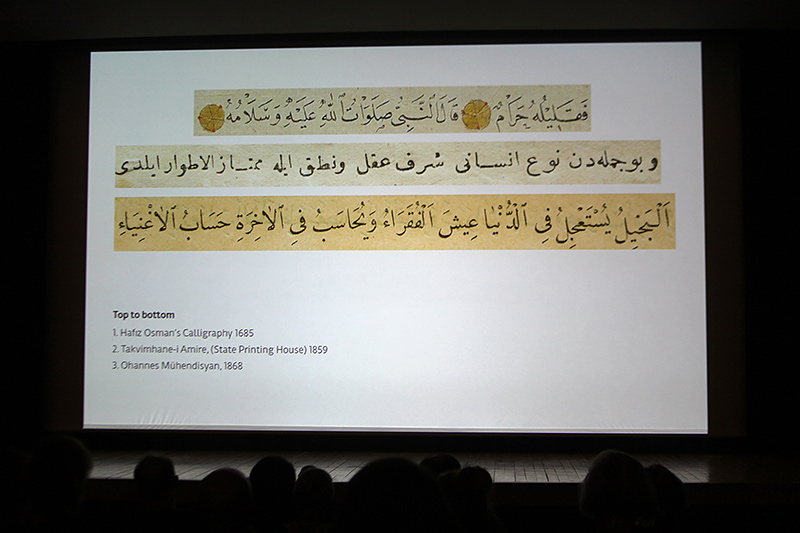 فَقَلِيلُهُ حَرَامٌ قَالَ النَّبِيُّ صَلَوَاتُ اللّٰهِ عَلَيْهِ وَسَلَامُهُ
و بو جمله‌دن نوع انسانى شرف عقل ونطق ايله ممتاز الاطوار ايلدى
اَلْبَخِيلُ يَسْتَعْجِلُ فِي الدُّنْيَا عِيشَ الْفُقَرَاءُ وَيُحَاسَبُ فِي الْاٰخِرَةِ حَسَابُ الْاَغْنِيَاءِ
Top to bottom
1. Hafız Osman's Calligraphy 1685
2. Takvimhane-i Amire, (State Printing House) 1859
3. Ohannes Mühendisyan, 1868